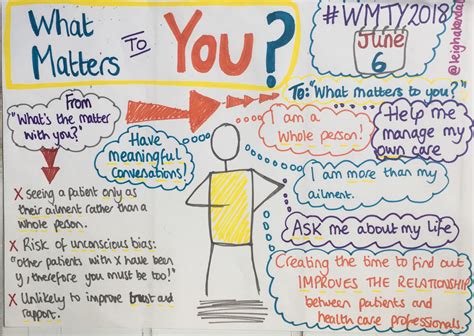 What
Matters
TO
YOU?
#WMTY2018
JUNE
6
@leighakendall
From
"What's the matter
with you?"
X seeing a patient only as
their ailment rather than a
whole person.
X Risk of unconscious bias:
"other patients with X have been
Y, therefore you must be too!"
X Unlikely to improve trust and
rapport.
Have
meaningful
conversations!
To: "What matters to you?"
I am a
whole person!
Help me
manage my
own care
I am more than my
ailment.
ASK me about my life
Creating the time to find out
IMPROVES THE RELATIONSHIP
between patients and
health care professionals